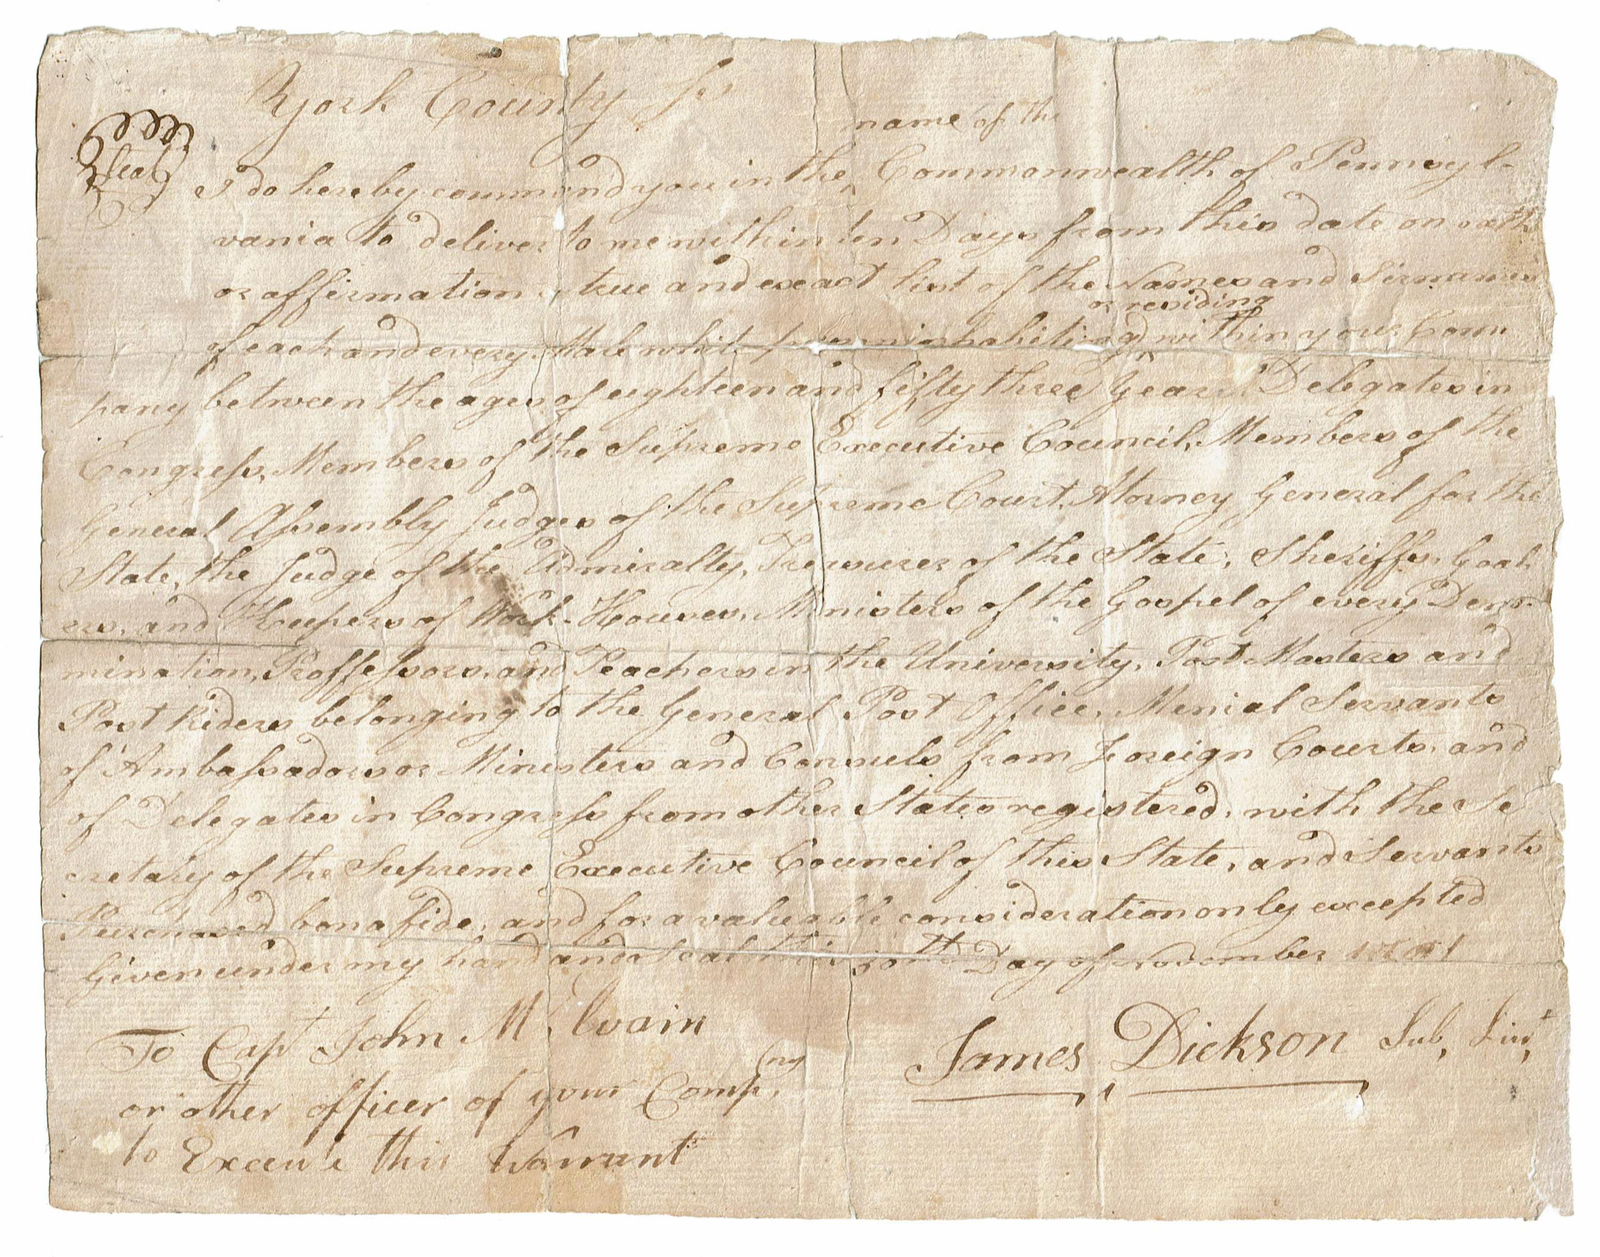 York County ss
name of the
Seal
I do hereby command you in the ‸ Commonwealth of Pennsyl-
vania to deliver to me within ten Days from this date on oath
or affirmation a true and exact list of the Names and Sirnames
or residing
of each and every Male white person inhabiting ‸ within your Com
pany between the ages of eighteen and fifty three Years Delegates in
Congress, Members of the Supreme Executive Council, Members of the
General Assembly Judges of the Supreme Court, Atorney General for the
State, the Judge of the Admiralty, Treasurer of the State, Sheriffs, Goal
ers, and Keepers of Work-Houses, Ministers of the Gospel of every Deno-
mination, Proffessors, and Teachers in the University, Post Masters and
Post Riders belonging to the General Post Office, Menial Servants
of Ambassadors or Ministers and Consuls from Foreign Courts, and
of Delegates in Congress from other States registered, with the Se
cretary of the Supreme Executive Council of this State, and Servants
Purchased bona fide, and for a valuable consideration only excepted
Given under my hand and Seal this Day of November
To Capt John McIlvain
James Dickson Sub, Liut,
or other officer of your Compny
to Execute this Warrant